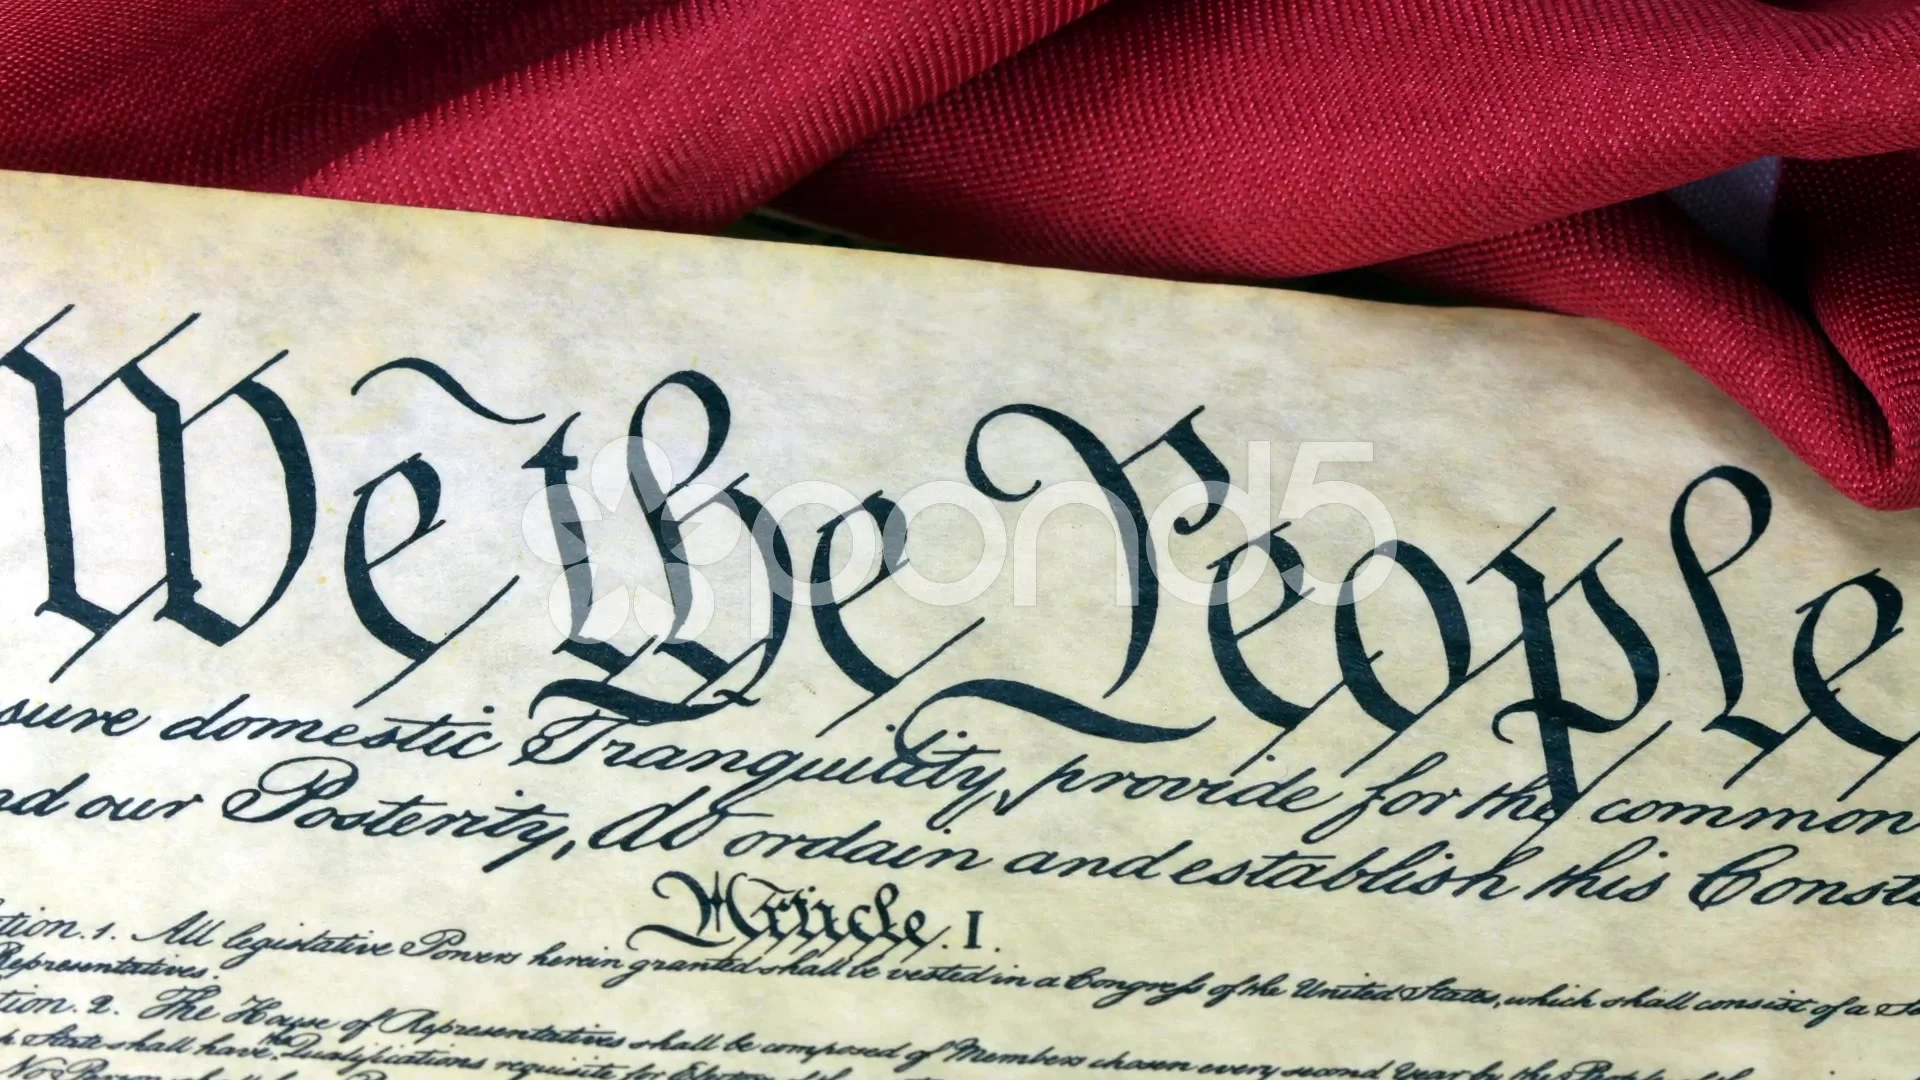 We the People
sure domestic Tranquility, provide for the common
nd our Posterity, do ordain and establish this Const
Article. I.
tion. 1. All legislative Powers herein granted shall be vested in a Congress of the United States, which shall consist of a Se
Representatives.
tion. 2. The House of Representatives shall be composed of Members chosen every second Year by the People of the
h State shall have the Qualifications requisite for Electors of the
No Person shall
pond5